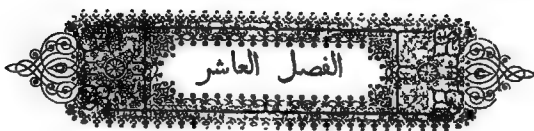 الفصل العاشر